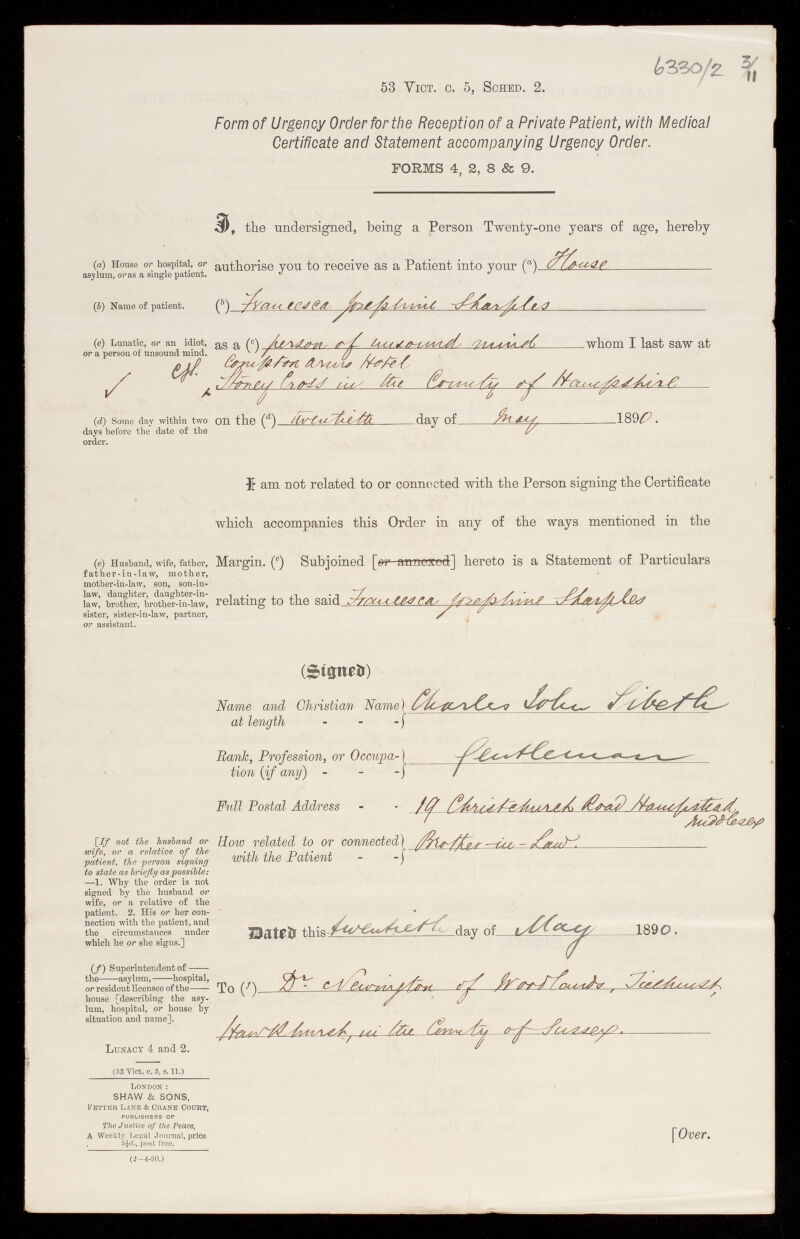 6330/2 3/11
53 VICT. C. 5, SCHED. 2.
Form of Urgency Order for the Reception of a Private Patient, with Medical
Certificate and Statement accompanying Urgency Order.
FORMS 4, 2, 8 & 9.
I, the undersigned, being a Person Twenty-one years of age, hereby
(a) House or hospital, or
asylum, or as a single patient.
authorise you to receive as a Patient into your (a) House
(b) Name of patient.
(b) Francesca Josephine Sharples
(c) Lunatic, or an idiot,
or a person of unsound mind.
as a (c) person of unsound mind whom I last saw at
Compton Arms Hotel
Stoney Cross in the County of Hampshire
(d) Some day within two
days before the date of the
order.
on the (d) twentieth day of May 1890.
I am not related to or connected with the Person signing the Certificate
which accompanies this Order in any of the ways mentioned in the
(e) Husband, wife, father,
father-in-law, mother,
mother-in-law, son, son-in-
law, daughter, daughter-in-
law, brother, brother-in-law,
sister, sister-in-law, partner,
or assistant.
Margin. (e) Subjoined [or annexed] hereto is a Statement of Particulars
relating to the said Francesca Josephine Sharples
(Signed)
Name and Christian Name
at length - - -
Charles John Sibeth
Rank, Profession, or Occupa-
tion (if any) - - -
Gentleman
Full Postal Address - - 19 Christchurch Road Hampstead
Middlesex
[If not the husband or
wife, or a relative of the
patient, the person signing
to state as briefly as possible:
—1. Why the order is not
signed by the husband or
wife, or a relative of the
patient. 2. His or her con-
nection with the patient, and
the circumstances under
which he or she signs.]
How related to or connected
with the Patient - -
Brother-in-Law.
Dated this twentieth day of May 1890.
(f) Superintendent of ——
the——asylum,——hospital,
or resident licensee of the——
house [describing the asy-
lum, hospital, or house by
situation and name].
To (f) Dr. Newington of Woodlands, Ticehurst,
Hawkhurst, in the County of Sussex.
LUNACY 4 and 2.
(53 Vict. c. 5, s. 11.)
LONDON:
SHAW & SONS,
FETTER LANE & CRANE COURT,
PUBLISHERS OF
The Justice of the Peace,
A Weekly Legal Journal, price
5½d., post free.
(2—4-90.)
[Over.